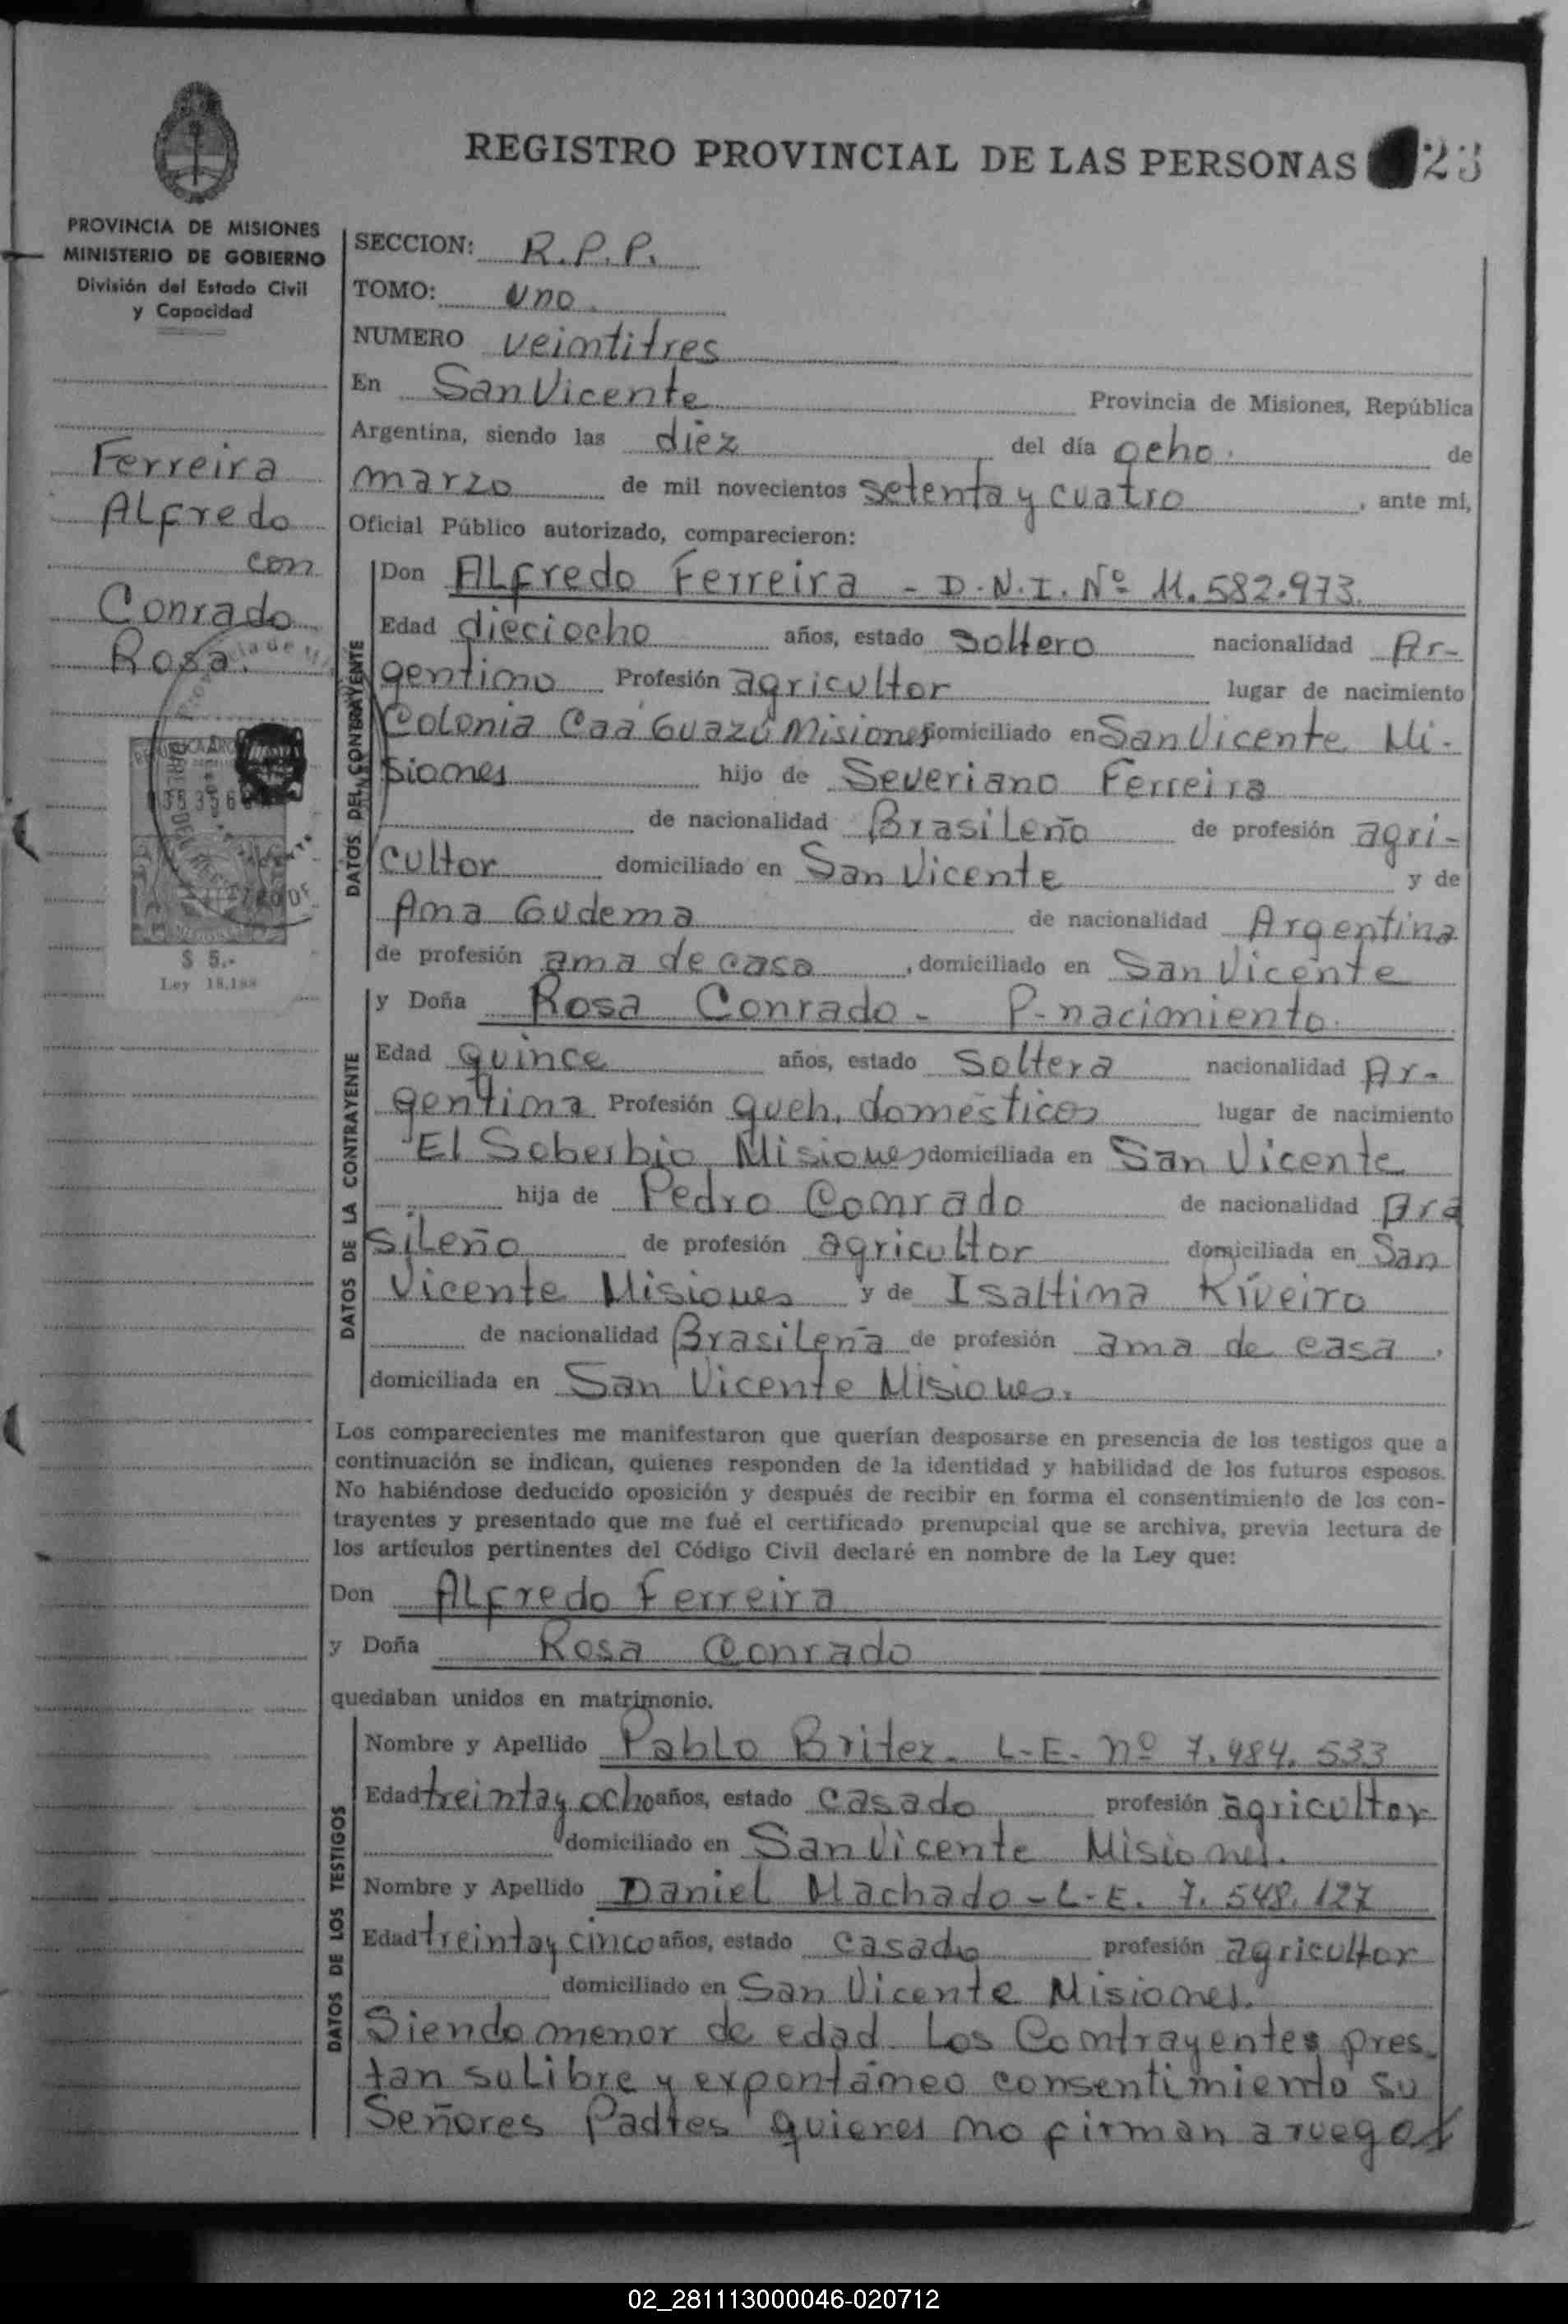 REGISTRO PROVINCIAL DE LAS PERSONAS 23
PROVINCIA DE MISIONES
MINISTERIO DE GOBIERNO
División del Estado Civil
y Capacidad
Ferreira
ALfredo
con
Conrado
Rosa.
$ 5.-
Ley 18.188
SECCION: R.P.P.
TOMO: uno.
NUMERO veimtitres
En San Vicente Provincia de Misiones, República
Argentina, siendo las diez del día ocho. de
marzo de mil novecientos setenta y cuatro, ante mí,
Oficial Público autorizado, comparecieron:
DATOS DEL CONTRAYENTE
Don ALfredo Ferreira - D.N.I. Nº 11.582.973.
Edad dieciocho años, estado soltero nacionalidad Ar-
gentimo Profesión agricultor lugar de nacimiento
Colonia Caá Guazú Misiones domiciliado en San Vicente Mi-
siones hijo de Severiano Ferreira
de nacionalidad BrasiLeño de profesión agri-
cultor domiciliado en San Vicente y de
Ama Gudema de nacionalidad Argentina
de profesión ama de casa, domiciliado en San Vicente
DATOS DE LA CONTRAYENTE
y Doña Rosa Conrado - P-nacimiento.
Edad quince años, estado soltera nacionalidad Ar-
gentima Profesión queh. domésticos lugar de nacimiento
El Soberbio Misiones domiciliada en San Vicente
hija de Pedro Comrado de nacionalidad Bra
siLeño de profesión agricultor domiciliada en San
Vicente Misiones y de Isaltima Riveiro
de nacionalidad BrasiLeña de profesión ama de casa,
domiciliada en San Vicente Misiones.
Los comparecientes me manifestaron que querían desposarse en presencia de los testigos que a
continuación se indican, quienes responden de la identidad y habilidad de los futuros esposos.
No habiéndose deducido oposición y después de recibir en forma el consentimiento de los con-
trayentes y presentado que me fué el certificado prenupcial que se archiva, previa lectura de
los artículos pertinentes del Código Civil declaré en nombre de la Ley que:
Don ALfredo Ferreira
y Doña Rosa Conrado
quedaban unidos en matrimonio.
DATOS DE LOS TESTIGOS
Nombre y Apellido PabLo Britez. L-E- nº 7.484.533
Edad treinta y ocho años, estado casado profesión agricultor
domiciliado en San Vicente Misiones.
Nombre y Apellido DanieL Machado - L-E. 7.548.127
Edad treinta y cinco años, estado casado profesión agricultor
domiciliado en San Vicente Misiomes.
Siendo menor de edad Los Comtrayentes pres-
tan su Libre y expontámeo consentimiemto su
Señores Padres quienes mo firman a ruego
02_281113000046-020712